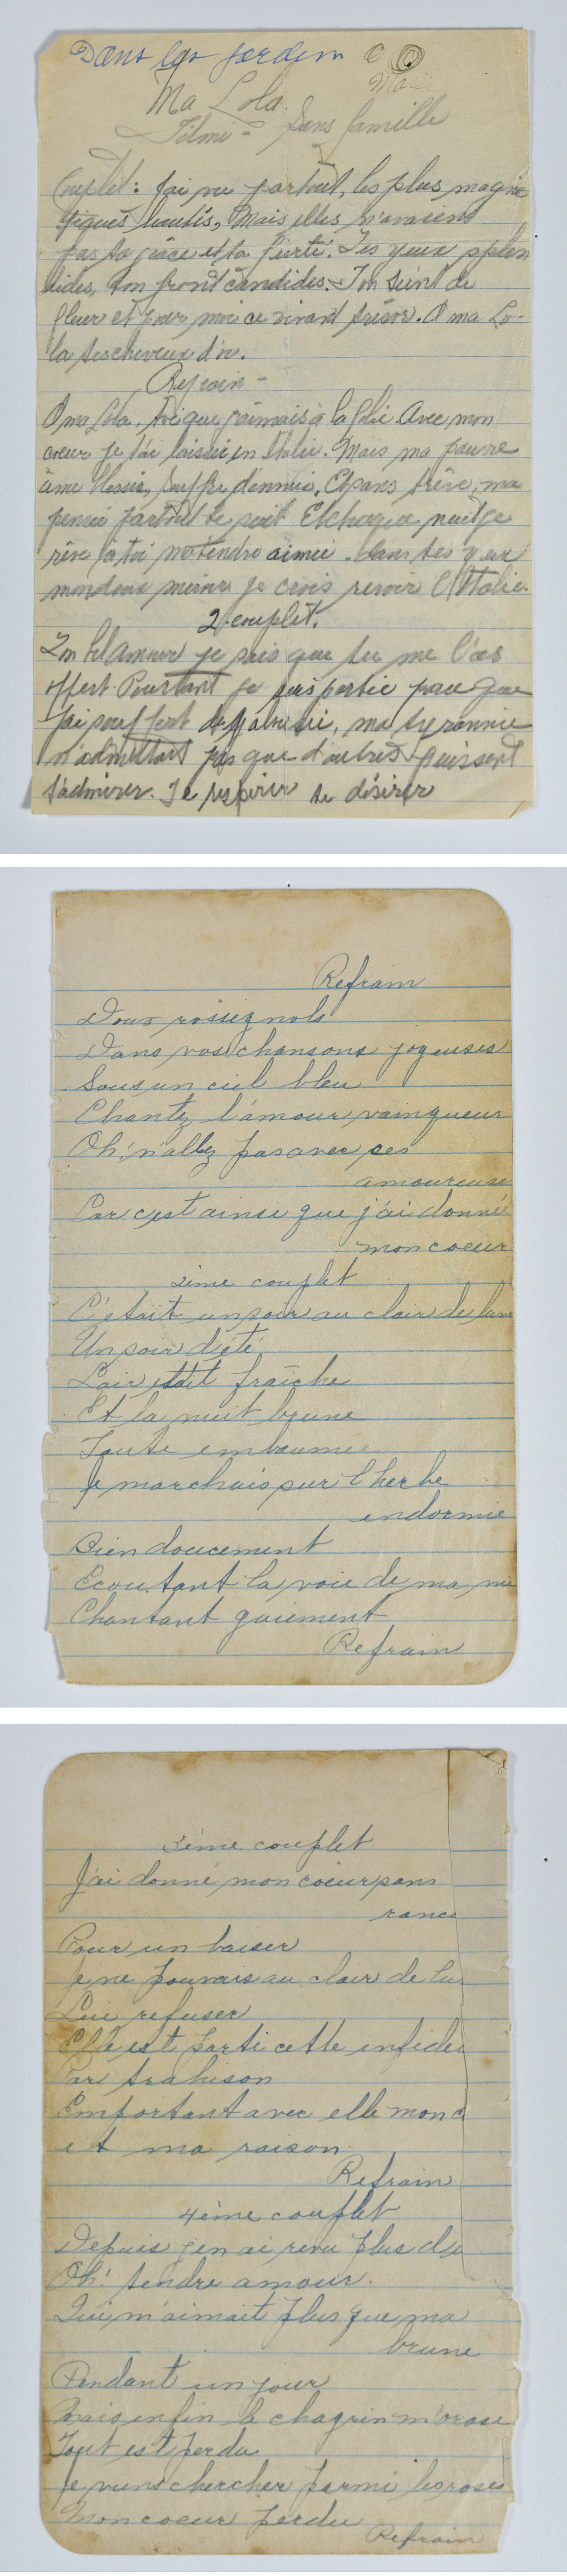 Dans les jardin
Ma Lola.
Filmé - Sans famille
Couplet: Jai vu partout, les plus magni
fiques beautés, Mais elles n'avaient
pas ta grâce et ta fierté. Tes yeux splen
dides, ton front candides. Ton teint de
fleur et pour moi ce vivant trésor. O ma Lo-
la tes cheveux d'or.
Refrain -
O ma Lola. Toi que j'aimais à la folie Avec mon
coeur je t'ai laissée en Italie. Mais ma pauvre
âme blessée, souffre d'ennui, Et sans trêve, ma
pensée partout te suit Et chaque nuit je
rêve à toi ma tendre aimée. dans tes yeux
mon doux je crois revoir l'Italie.
2. couplet.
Ton bel Amour je sais que tu me l'as
offert Pourtant je suis partie parce que
j'ai souffert de jalousie, ma tyrannie
n'admettait pas que d'autres puissent
t'admirer. Te respirer te désirer
Refrain
Doux rossignols
Dans vos chansons joyeuses
Sous un ciel bleu
Chantez l'amour vainqueur
Oh! n'allez pas avec ces
amoureuse
Car c'est ainsi que j'ai donné
mon coeur
2ième couplet
C'était un soir au clair de lune
Un soir d'été
L'air était fraîche
Et la nuit brune
Toute embaumée
Je marchais sur l'herbe
endormie
Bien doucement
Ecoutant la voie de ma mie
Chantant gaiement
Refrain
3ième couplet
J'ai donné mon coeur sans
ranc
Pour un baiser
Je ne pouvais au clair de lu
Lui refuser
Elle est parti cette infidè
Par trahison
Emportant avec elle mon c
et ma raison.
Refrain
4ième couplet
Depuis j'en ai revu plus d'u
Oh! tendre amour.
Qui m'aimait plus que ma
brune
Pendant un jour
Mais enfin le chagrin m'arose
Tout est perdu
Je viens chercher parmi les roses
Mon coeur perdu
Refrain